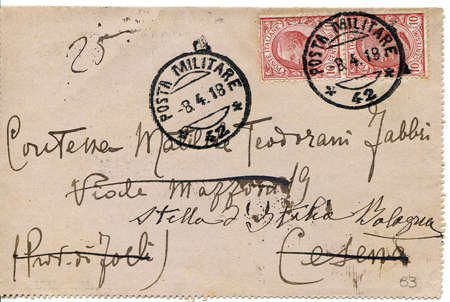 25
POSTE ITALIANE
POSTA MILITARE
-8.4.18
42
POSTA MILITARE
-8.4.18
42
Contessa Teodorani Fabbri
Viale Mazzoni 19
Stella d'Italia Bologna
(Prov. di Forlì) Cesena
63